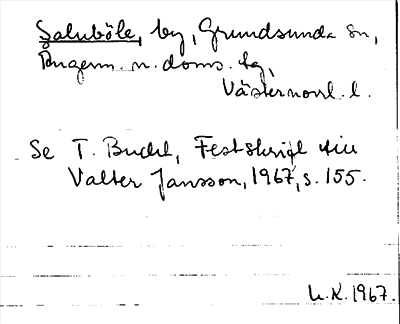 Saluböle, by, Grundsunda sn,
Ångerm. n. doms. tg,
Västernorrl. l.
Se T. Bucht, Festskrift till
Valter Jansson, 1967, s. 155.
U.K. 1967.